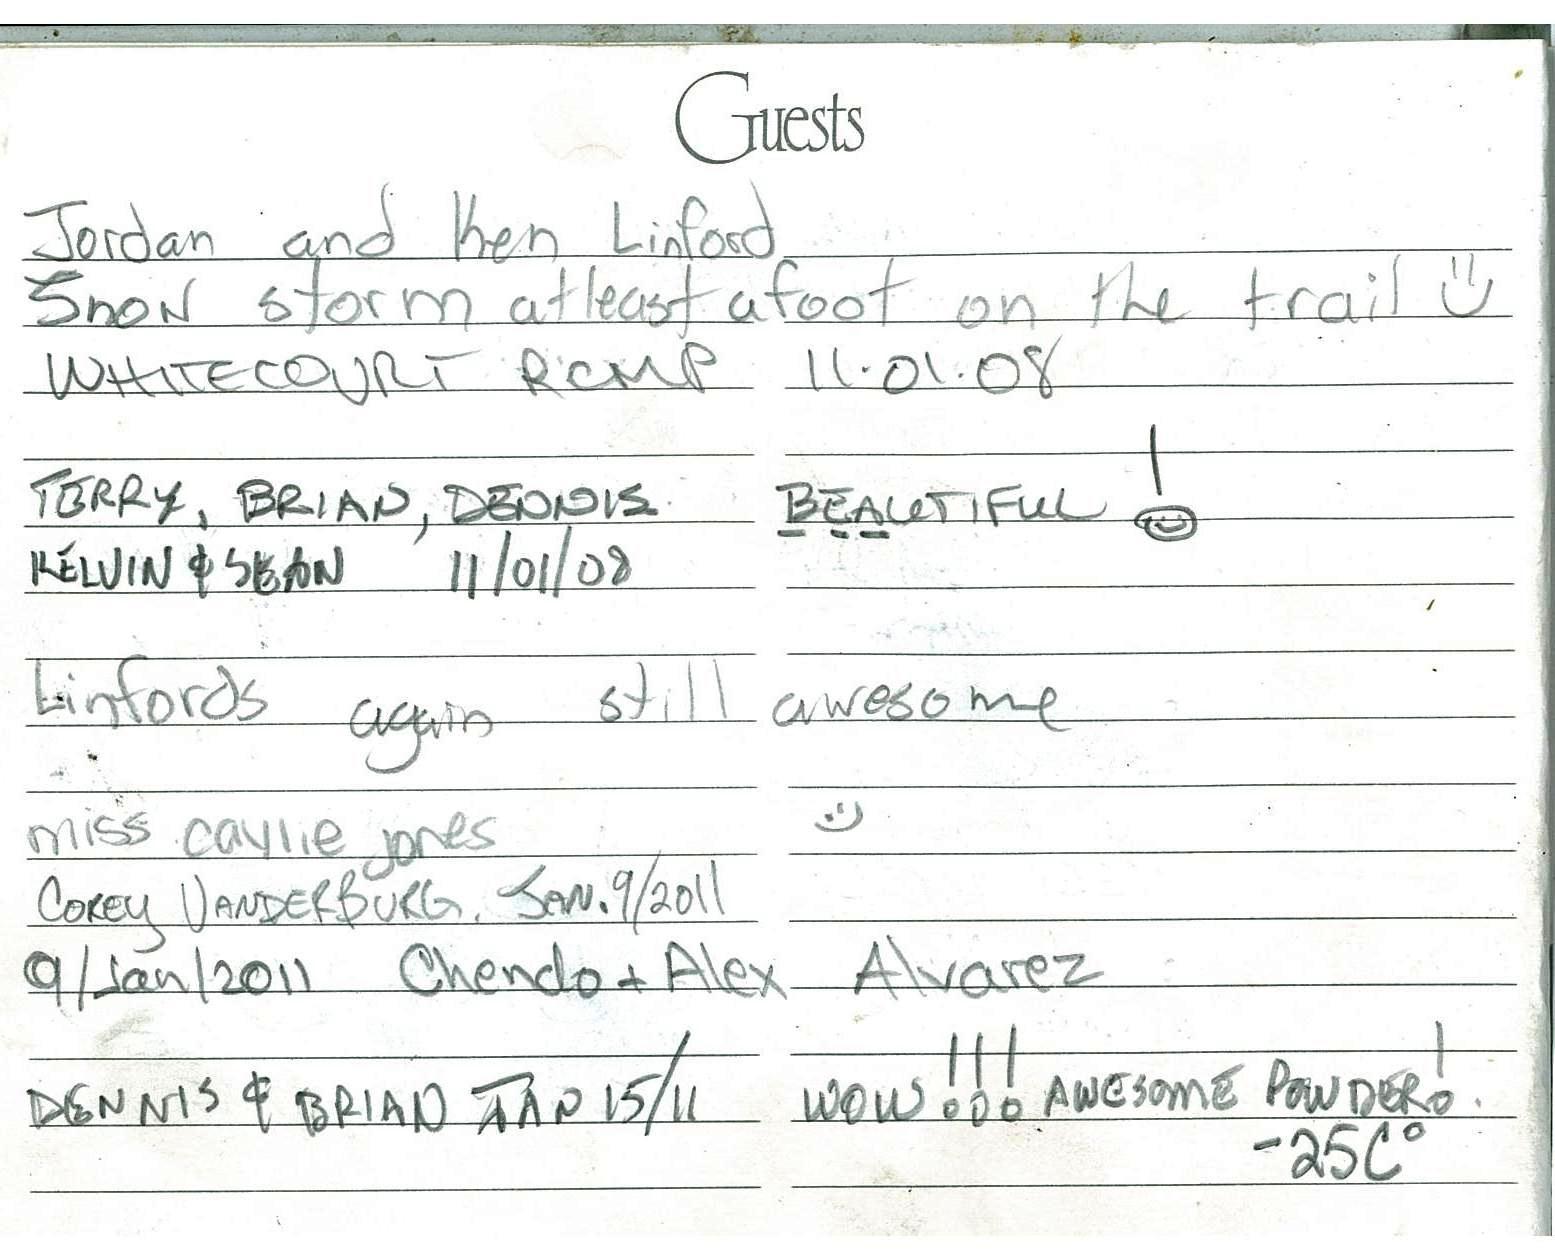 Guests
Jordan and Ken Linford
Snow storm atleast afoot on the trail
WHITECOURT RCMP 11.01.08
TERRY, BRIAN, DENNIS BEAUTIFUL!
KELVIN & SEAN 11/01/08
Linfords again still awesome
miss caylie jones :)
COREY VANDERBURG. JAN. 9/2011
9/Jan/2011 Chendo + Alex Alvarez
DENNIS & BRIAN JAN 15/11 WOW!!! AWESOME POWDER!.
-25C°